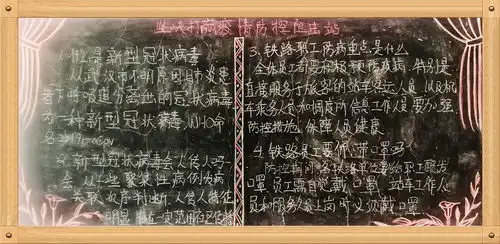 坚决打赢疫情防控阻击战
1.什么是新型冠状病毒
从武汉市不明原因肺炎患
者下呼吸道分离出的冠状病毒
为一种新型冠状病毒,WHO命
名2019-nCoV
2.新型冠状病毒会人传人吗
会,从一些聚集性病例的
关联次序判断,人传人特征
明显,
3.铁路职工防病重点是什么
全体员工都要积极预防疾病,特别是
直接服务于旅客的站车客运人员,以及机
车乘务人员和调度所信息工作人员要加强
防控措施,保障人员健康
4.铁路员工要佩带口罩吗?
防控期间各铁路单位要给职工配发
口罩,员工需自觉戴口罩,站车工作人
员和服务人员上岗时必须戴口罩